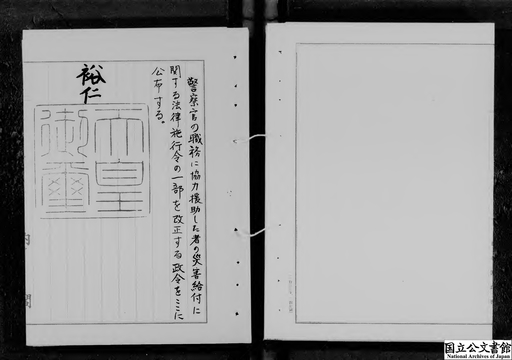 警察官の職務に協力援助した者の災害給付に
関する法律施行令の一部を改正する政令をここに
公布する。
裕仁
天皇
御璽
国立公文書館
National Archives of Japan